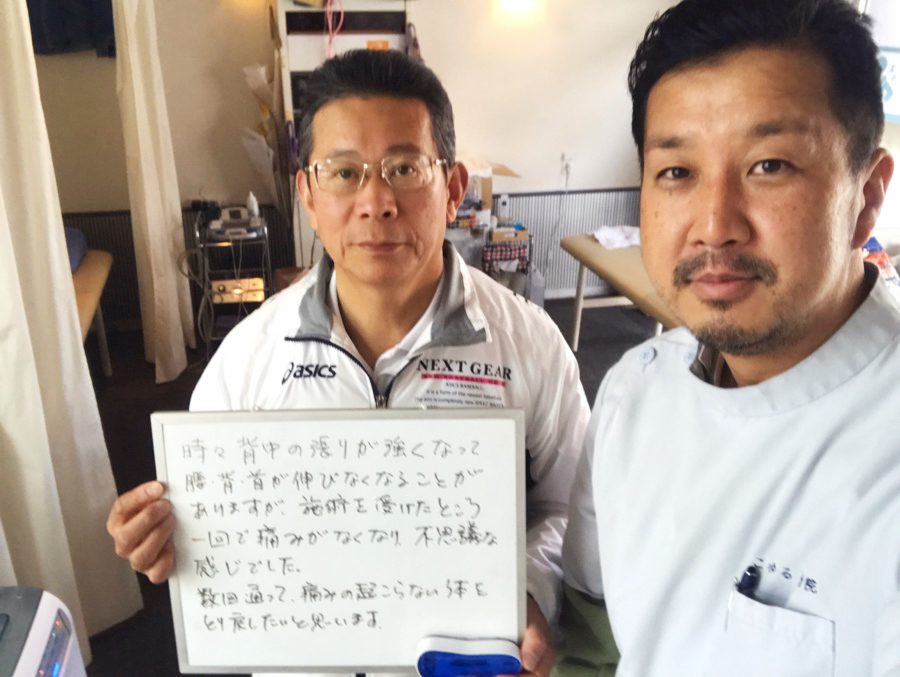 asics
NEXT GEAR
時々背中の張りが強くなって
腰・背・首が伸びなくなることが
ありますが、施術を受けたところ
一回で痛みがなくなり、不思議な
感じでした。
数回通って、痛みの起こらない体を
とり戻したいと思います。